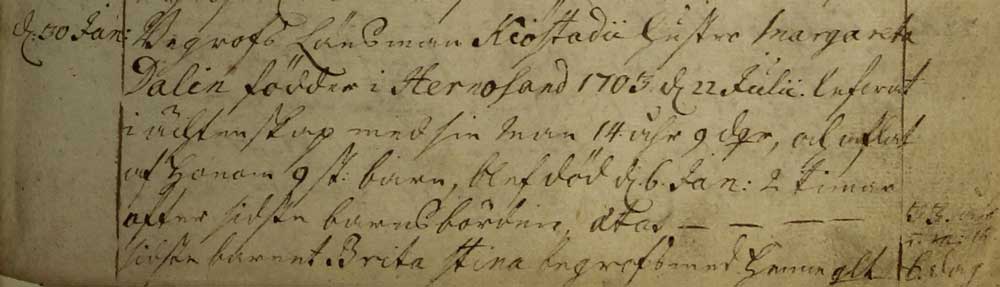 d. 30 Jan: Begrofs Länsman Kiöstadii hustro Margareta
Dalin födder i Hernosand 1703 d 22 Julii. lefwat
i ächtenskap med sin man 14 åhr 9 dgr, och aflat
af honom 9 st: barn, blef död d. 6. Jan: 2 timar
efter sidste barnsbörden, ætas — — —
sidste barnet Brita Stina begrofs med henne glt 6. dag